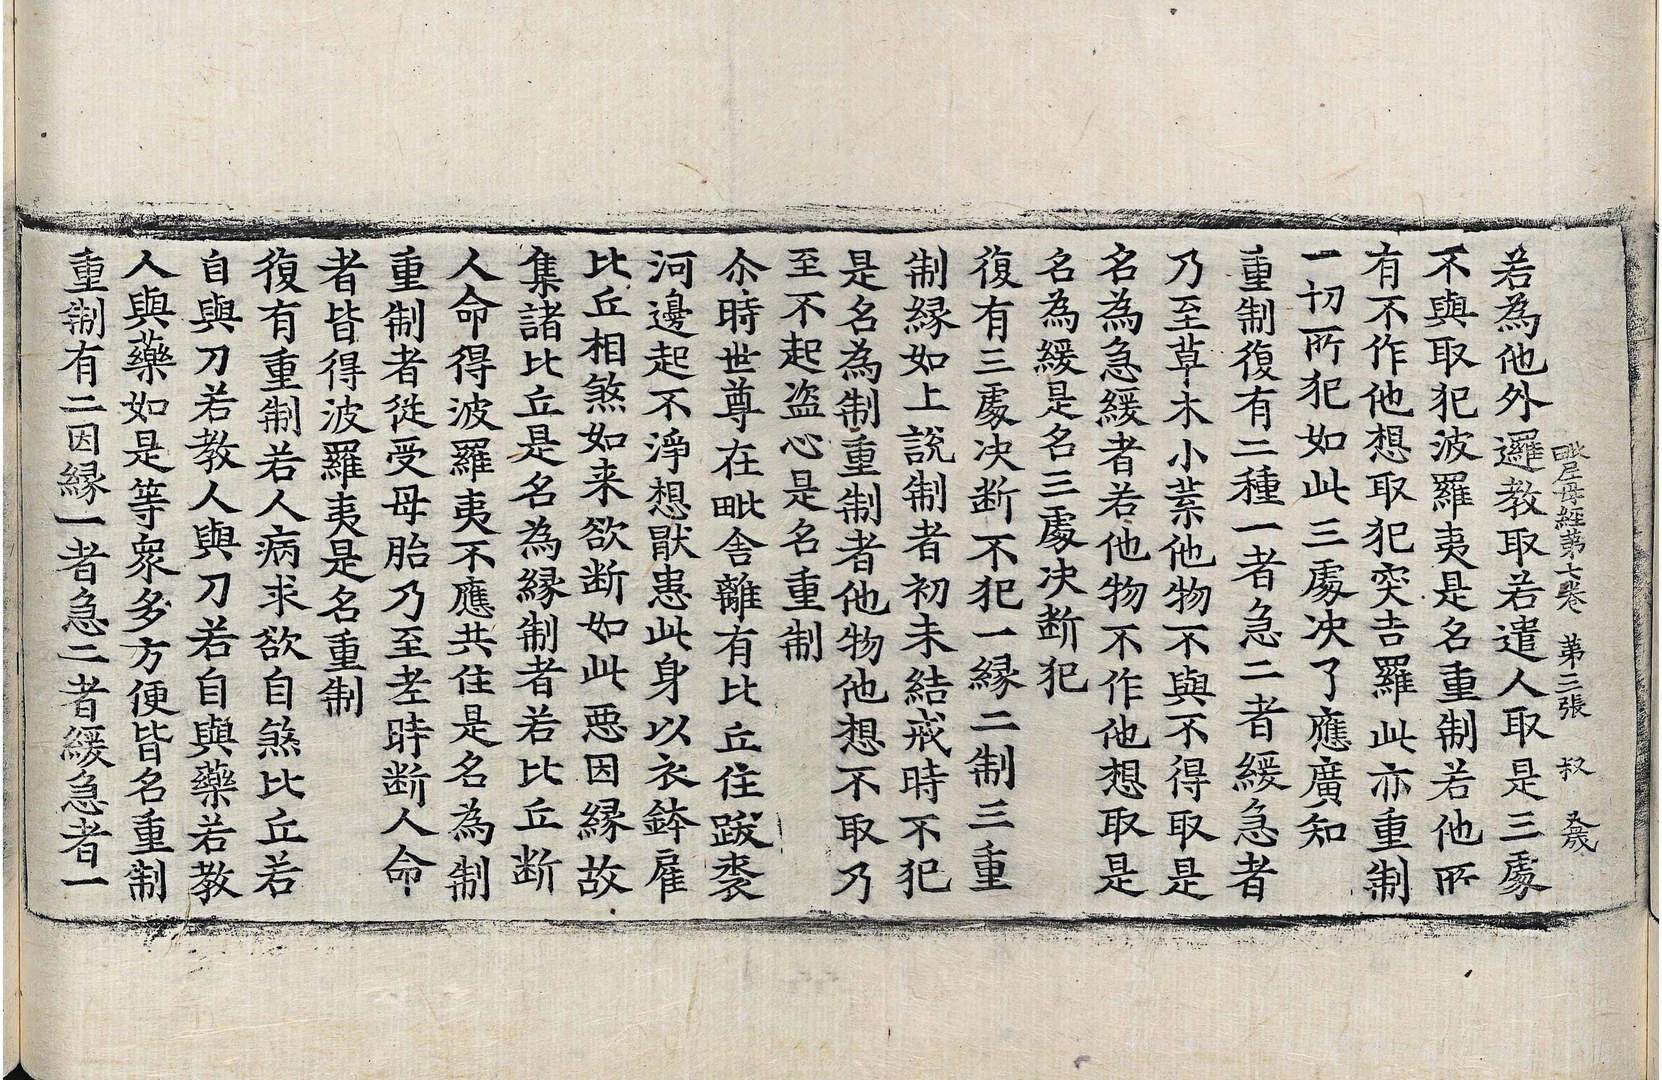 毗尼母經第七卷 第三張 叔
若為他外邏教取若遣人取是三處
不與取犯波羅夷是名重制若他所
有不作他想取犯突吉羅此亦重制
一切所犯如此三處決了應廣知
重制復有二種一者急二者緩急者
乃至草木小葉他物不與不得取是
名為急緩者若他物不作他想取是
名為緩是名三處决断犯
復有三處决断不犯一縁二制三重
制縁如上説制者初未結戒時不犯
是名為制重制者他物他想不取乃
至不起盗心是名重制
尒時世尊在毗舍離有比丘住跋裘
河邊起不淨想猒患此身以衣鉢雇
比丘相煞如来欲断如此惡因縁故
集諸比丘是名為縁制者若比丘断
人命得波羅夷不應共住是名為制
重制者從受母胎乃至老時断人命
者皆得波羅夷是名重制
復有重制若人病求欲自煞比丘若
自與刀若教人與刀若自與藥若教
人與藥如是等衆多方便皆名重制
重制有二因縁一者急二者緩急者一